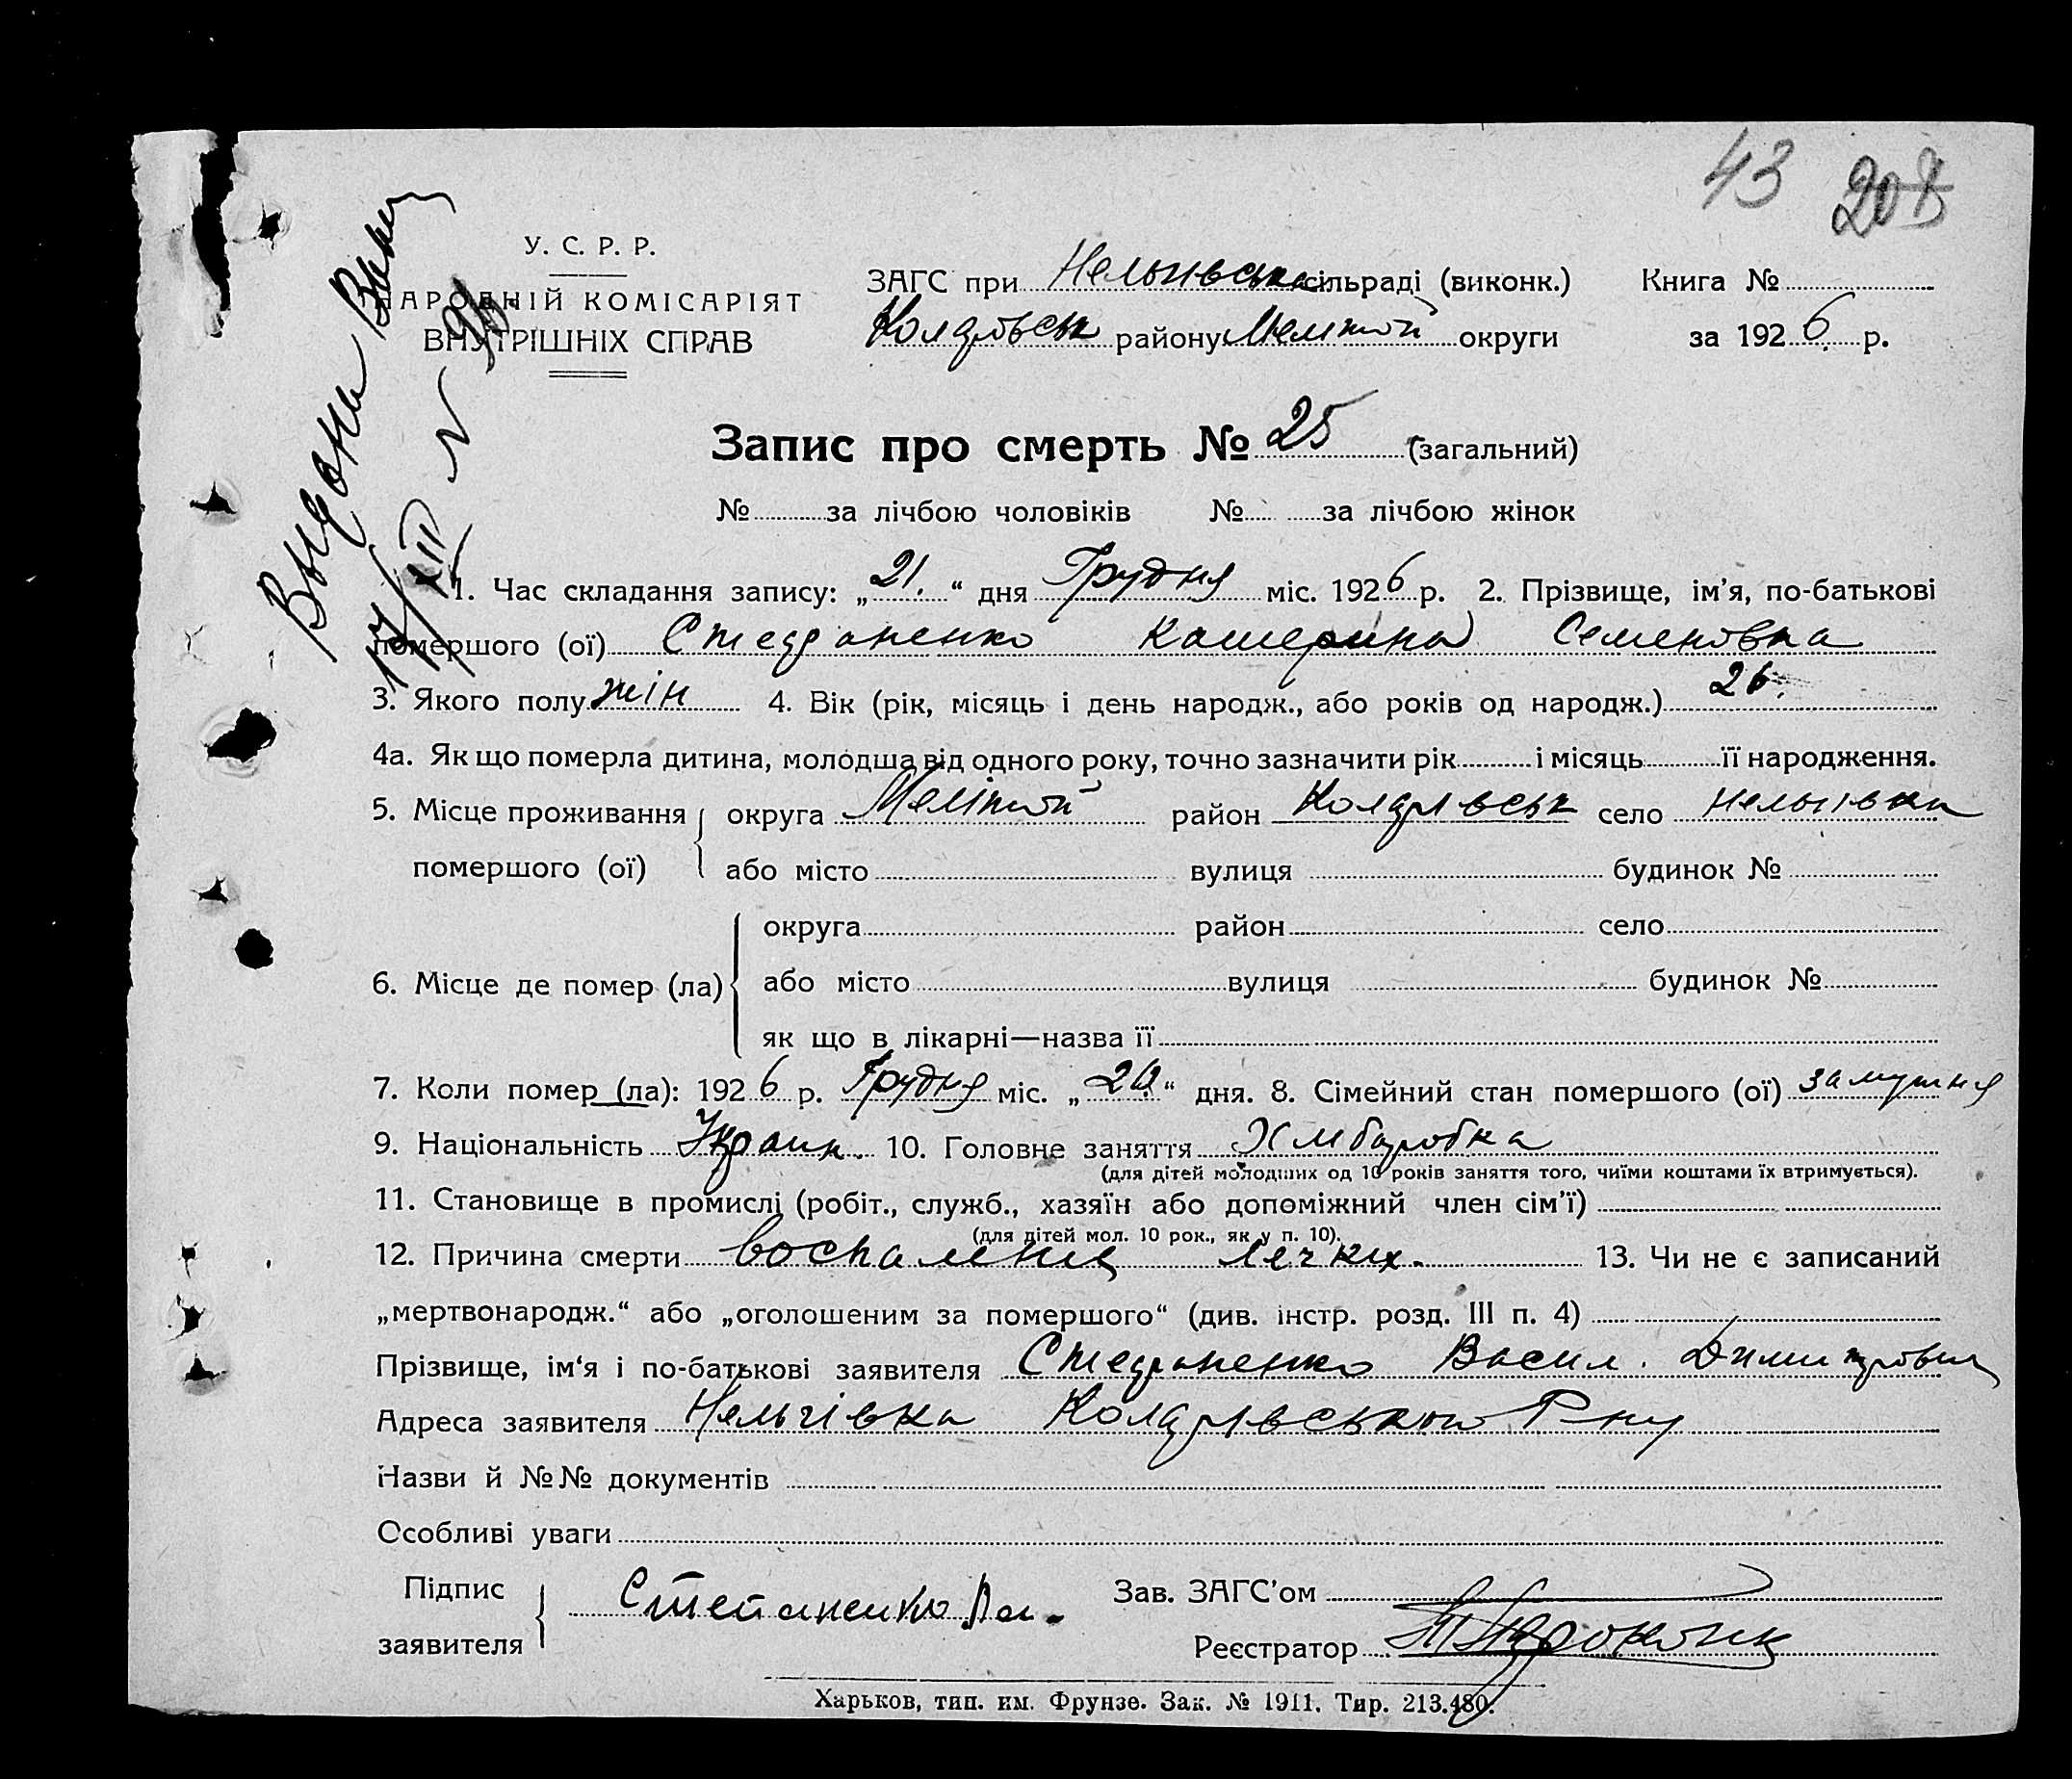 43 208
У. С. Р. Р.
НАРОДНІЙ КОМІСАРІЯТ
ВНУТРІШНІХ СПРАВ
ЗАГС при Нельгівськ сільраді (виконк.) Книга №
Колярівськ району Меліпой округи за 1926 р.
Запис про смерть № 25 (загальний)
№ за лічбою чоловіків № за лічбою жінок
1. Час складання запису: „21.“ дня Грудня міс. 1926 р. 2. Прізвище, ім’я, по-батькові
помершого (ої) Степаненко Катерина Семеновна
3. Якого полу жін 4. Вік (рік, місяць і день народж., або років од народж.) 26.
4а. Як що померла дитина, молодша від одного року, точно зазначити рік і місяць її народження.
5. Місце проживання округа район село Нельгівка
помершого (ої) або місто вулиця будинок №
округа район село
6. Місце де помер (ла) або місто вулиця будинок №
як що в лікарні—назва її
7. Коли помер (ла): 1926 р. Грудня міс. „20“ дня. 8. Сімейний стан помершого (ої) замужня
9. Національність Украин. 10. Головне заняття Хліборобка
(для дітей молодших од 10 років заняття того, чиїми коштами їх втримується).
11. Становище в промислі (робіт., служб., хазяїн або допоміжний член сім’ї)
(для дітей мол. 10 рок., як у п. 10).
12. Причина смерти воспаление легких. 13. Чи не є записаний
„мертвонародж.“ або „оголошеним за помершого“ (див. інстр. розд. III п. 4)
Прізвище, ім‘я і по-батькові заявителя Степаненко Васил. Димитрович
Адреса заявителя Нельгівка Р-ну
Назви й №№ документів
Особливі уваги
Підпис Степаненко Ва. Зав. ЗАГС’ом
заявителя Реєстратор
Харьков, тип. им. Фрунзе. Зак. № 1911. Тир. 213.480.